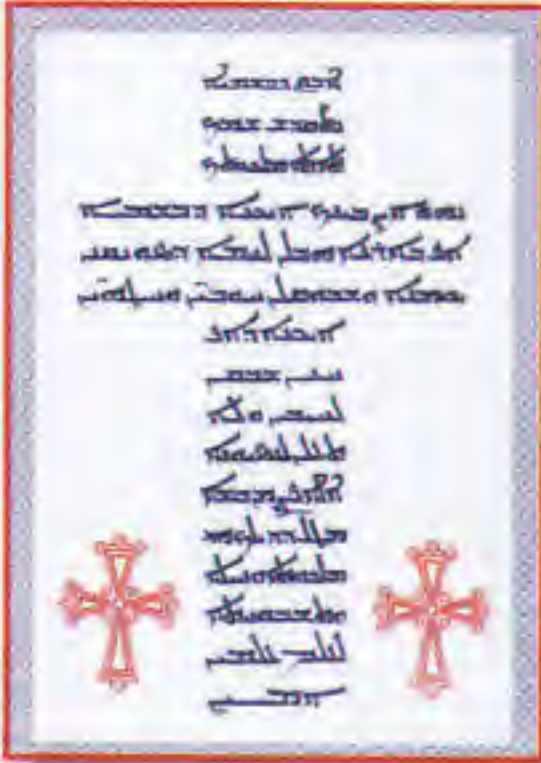 ܐܒܘܢ ܕܒܫܡܝܐ
ܢܬܩܕܫ ܫܡܟ
ܬܐܬܐ ܡܠܟܘܬܟ
ܢܗܘܐ ܨܒܝܢܟ ܐܝܟܢܐ ܕܒܫܡܝܐ
ܐܦ ܒܐܪܥܐ ܗܒ ܠܢ ܠܚܡܐ ܕܣܘܢܩܢܢ
ܝܘܡܢܐ ܘܫܒܘܩ ܠܢ ܚܘܒܝܢ ܘܚܛܗܝܢ
ܐܝܟܢܐ ܕܐܦ
ܚܢܢ ܫܒܩܢ
ܠܚܝܒܝܢ ܘܠܐ
ܬܥܠܢ ܠܢܣܝܘܢܐ
ܐܠܐ ܦܨܢ ܡܢ ܒܝܫܐ
ܡܛܠ ܕܕܝܠܟ ܗܝ
ܡܠܟܘܬܐ ܘܚܝܠܐ
ܘܬܫܒܘܚܬܐ
ܠܥܠܡ ܥܠܡܝܢ
ܐܡܝܢ